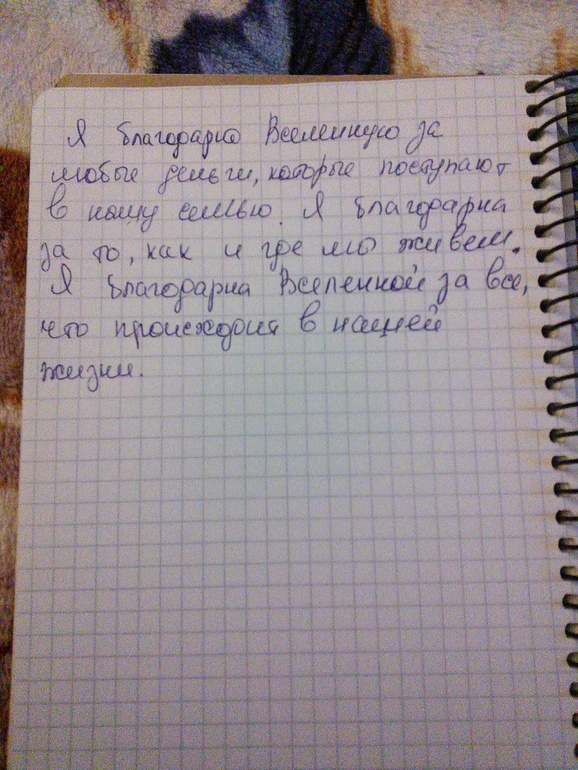 Я благодарю Вселенную за
любые деньги, которые поступают
в нашу семью. Я благодарна
за то, как и где мы живем.
Я благодарна Вселенной за все,
что происходит в нашей
жизни.